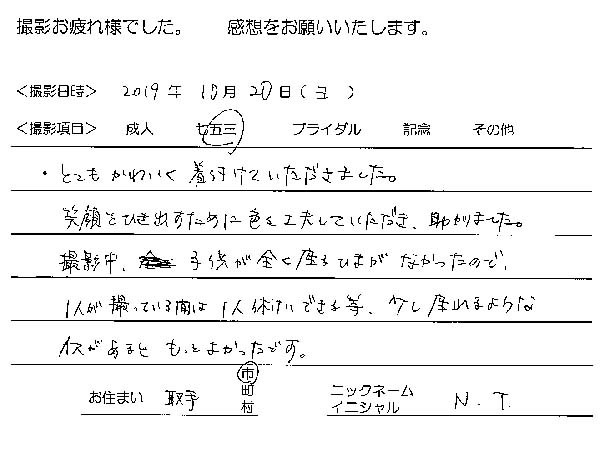 撮影お疲れ様でした。 感想をお願いいたします。
<撮影日時> 2019年 10月 20日(日)
<撮影項目> 成人 七五三 ブライダル 記念 その他
・とてもかわいく着付けていただきました。
笑顔をひき出すために色々工夫していただき、助かりました。
撮影中、子供が全く座るひまがなかったので、
1人が撮っている間は1人休けいできる等、少し座れるような
イスがあるともっとよかったです。
お住まい 取手 市 町 村 ニックネーム イニシャル N.T.